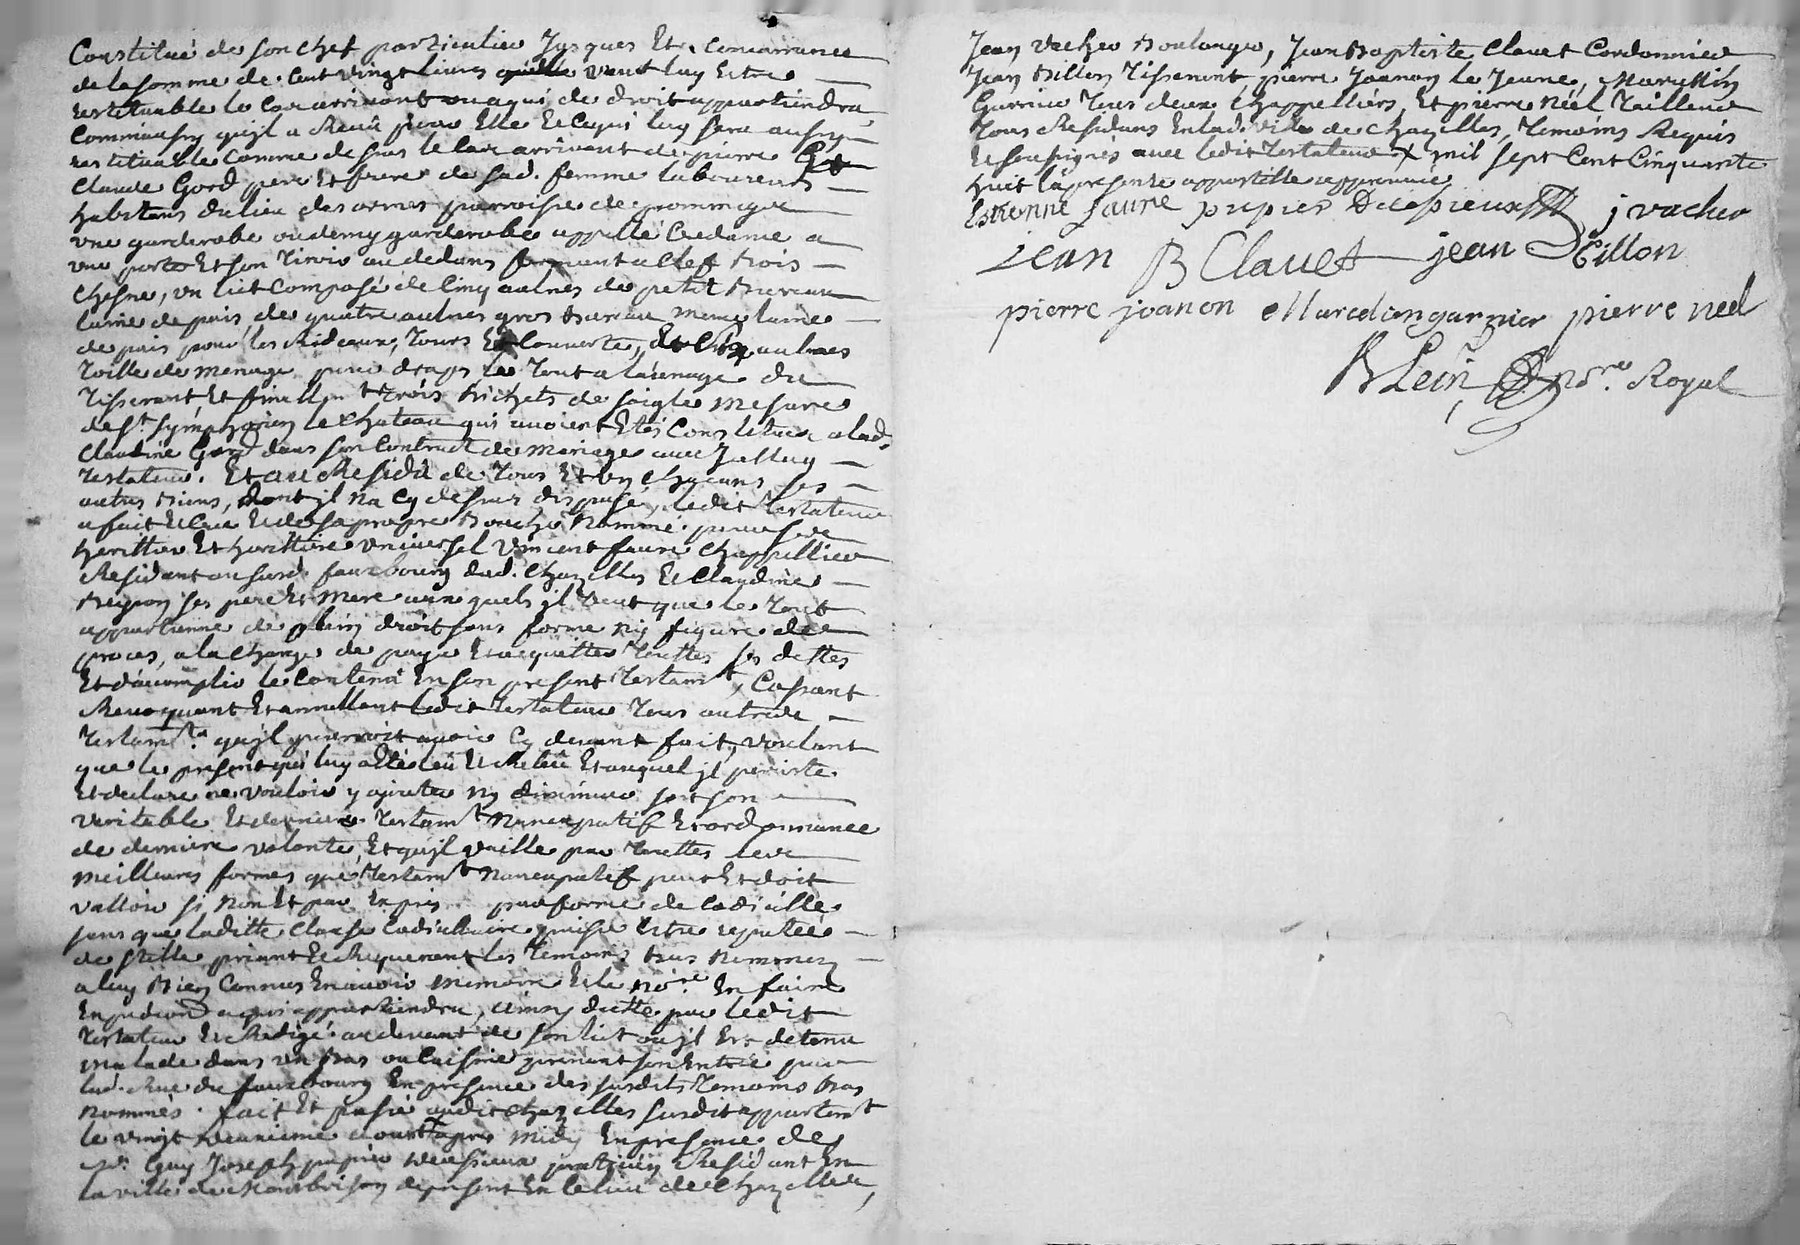 Constitué de son chef particulier Jusques Et. Concurrance
de la somme de Cent vingt livres quelle veut luy Estre
restituable le Cas arrivant ou a qui de droit appartiendra
Comm'aussy qu'jl a Reçeu pour Elle Et Ce qui luy sera aussy
restituable Comme dessus le Cas arrivant de pierre Et
Claude Gord pere Et frere de sad. femme laboureurs
habitans du lieu des ormes parroisse de grommigue
une garderobe ou demy garderobe appellé Credance a
une porte Et son Tiroir au dedans fermant a Clef Bois
Chesne, un lict Composé de Cinq aulnes de petit Bureau
lainé de païs, de quatre aulnes gros bureau meme laine
de païs pour les Rideaux, Tours Et Couverte, Et Cinq aulnes
Toille de menage pour draps Le Tout a l'aunage du
Tisserant, Et finallem.t Trois Bichets de soigle mesure
de S.t Symphorien le Chateau qui avoient Etés Constitués a lad.
Claudine Gord dans son Contract de mariage avec Jcelluy
Testateur. Et au Residû de Tous Et un Chacuns ses
autres Biens, dont jl n'a Cy dessus disposé, ledit Testateur
a fait Et Cree Et de sa propre Bouche Nommé pour ses
herittier Et herittiere universel Vincent faure Chappellier
Residant au susd. fauxbourg dud. Chazelles Et Claudine
Besson ses pere Et Mere auxquels jl veut que le Tout
appartienne de plein droit sans forme ny figure de
proces, a la Charge de payer Et acquitter Touttes ses dettes
Et d'accomplir le Contenû En son present Testam.t, Cassant
Revoquant Et annullant ledit Testateur Tous autres
Testam.ts qu'jl pourroit avoir Cy devant fait, voulant
que le present qui luy a Eté leû Et Releû Et auquel jl persiste
Et declare ne vouloir y ajouter ny diminuer soit son
veritable Et dernier Testam.t Nuncupatif Et ordonnance
de derniere volonté, Et qu'jl vaille par Touttes les
meilleures formes que Testam.t Nuncupatif peut Et doit
valloir si Non Et par Exprès par forme de Codicille
sans que laditte Clause Codicillaire puisse Estre reputée
de stille priant Et Requerant les Temoins bas Nommez
a luy Bien Connus En avoir memoire Et le No.re En faire
Expedion a qui appartiendra, ainsy dicté par ledit
Testateur Et Redigé au devant de son lict ou jl Est detenu
malade dans un bas ou Cuisine prenant son Entrée par
lad. Rue du fauxbourg En presence des susdits Temoins bas
Nommés. fait Et passé audit Chazelles susdit appartem.t
le vingt deuxieme d'oust apres midy En presence de
S.r Guy Joseph pupier Decessieux praticien Residant En
la ville de Montbrison de present En Ce lieu de Chazelles,
Jean Vacher Boulanger, Jean Baptiste Clavet Cordonnier
Jean Billon Tisserant, pierre Joanon le Jeune, Marcellin
Garnier Tous deux Chappelliers, Et pierre Néel Tailleur
Tous Residans En lad. ville de Chazelles, Temoins Requis
Et soussignés avec ledit Testateur X mil sept Cent Cinquante
huit la presente appostille approuvée
Estienne faure pupier Decessieux j vacher
jean B Clavet jean Billon
pierre joanon Marcelin garnier pierre neel
Blein no.re Royal